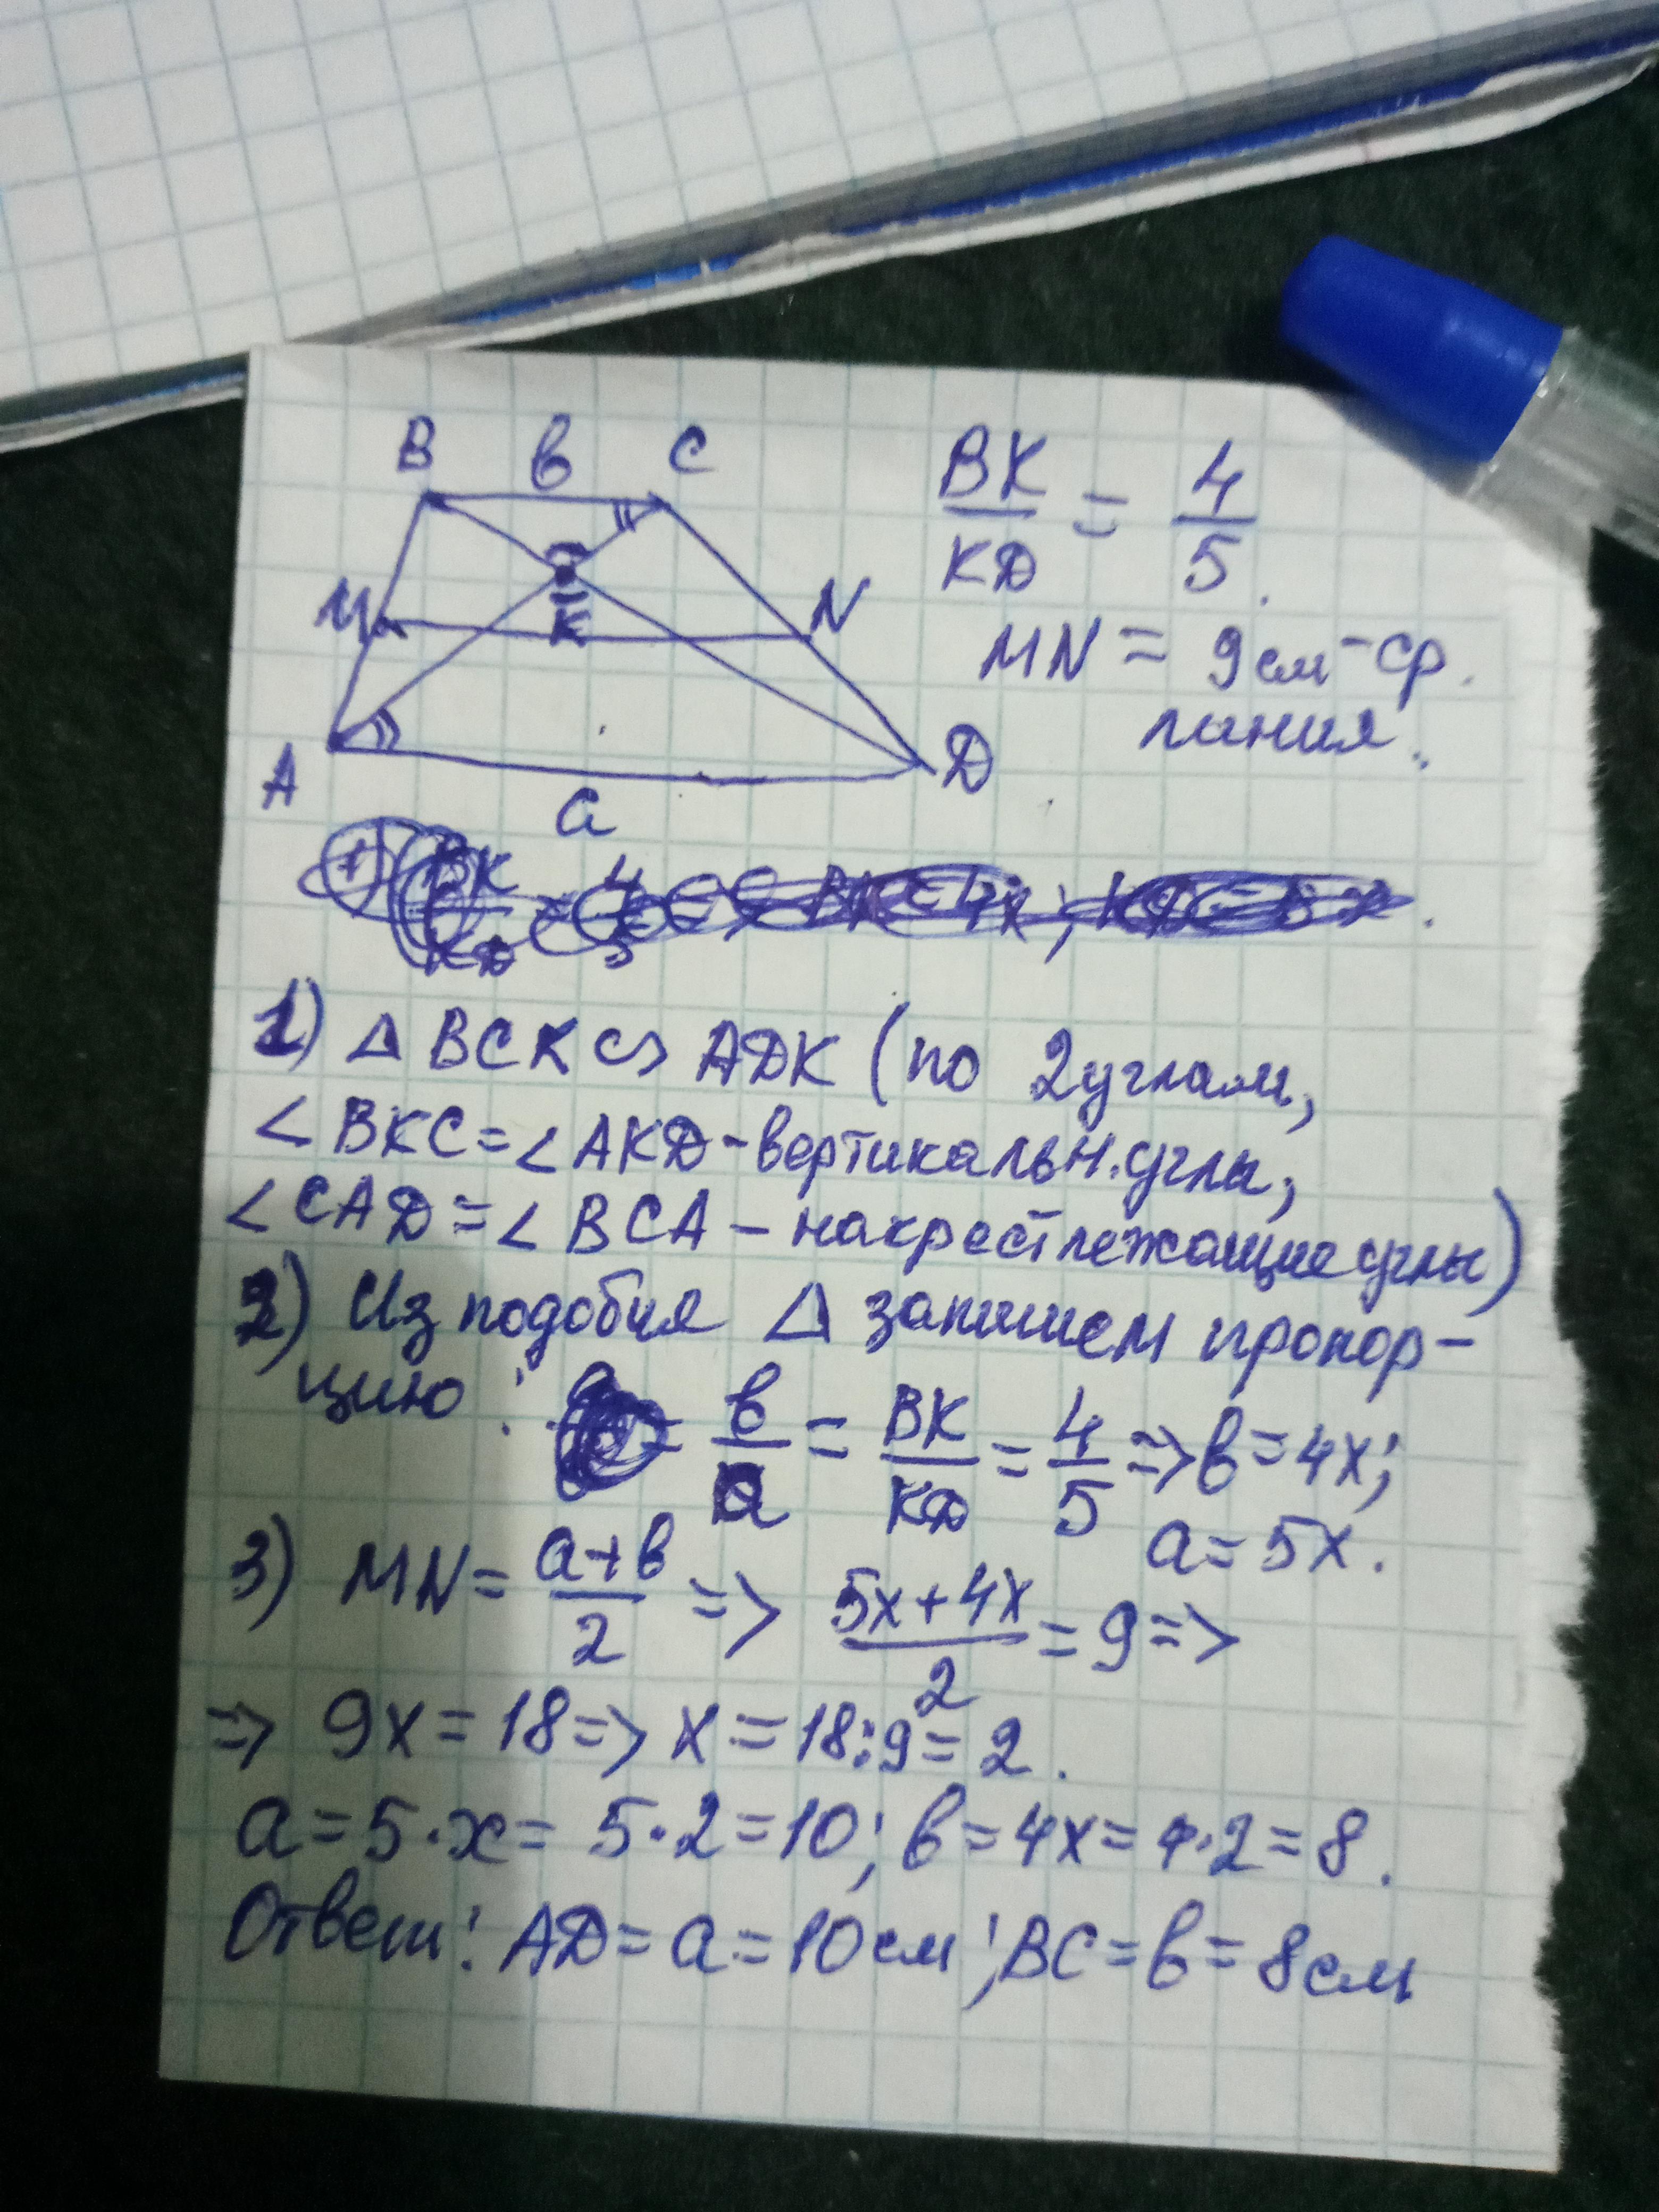 B в C
BK/KD = 4/5.
M N
K
MN = 9 см - ср.
линия.
A D
a
1) △ BCK ∽ ADK (по 2 углам,
∠ BKC = ∠ AKD - вертикальн. углы,
∠ CAD = ∠ BCA - накрест лежащие углы)
2) Из подобия △ запишем пропор-
цию: в/a = BK/KD = 4/5 => в = 4x;
a = 5x.
3) MN = a+в/2 => 5x+4x/2 = 9 =>
=> 9x = 18 => x = 18:9 = 2.
a = 5·x = 5·2 = 10; в = 4x = 4·2 = 8.
Ответ: AD = a = 10 см; BC = в = 8 см